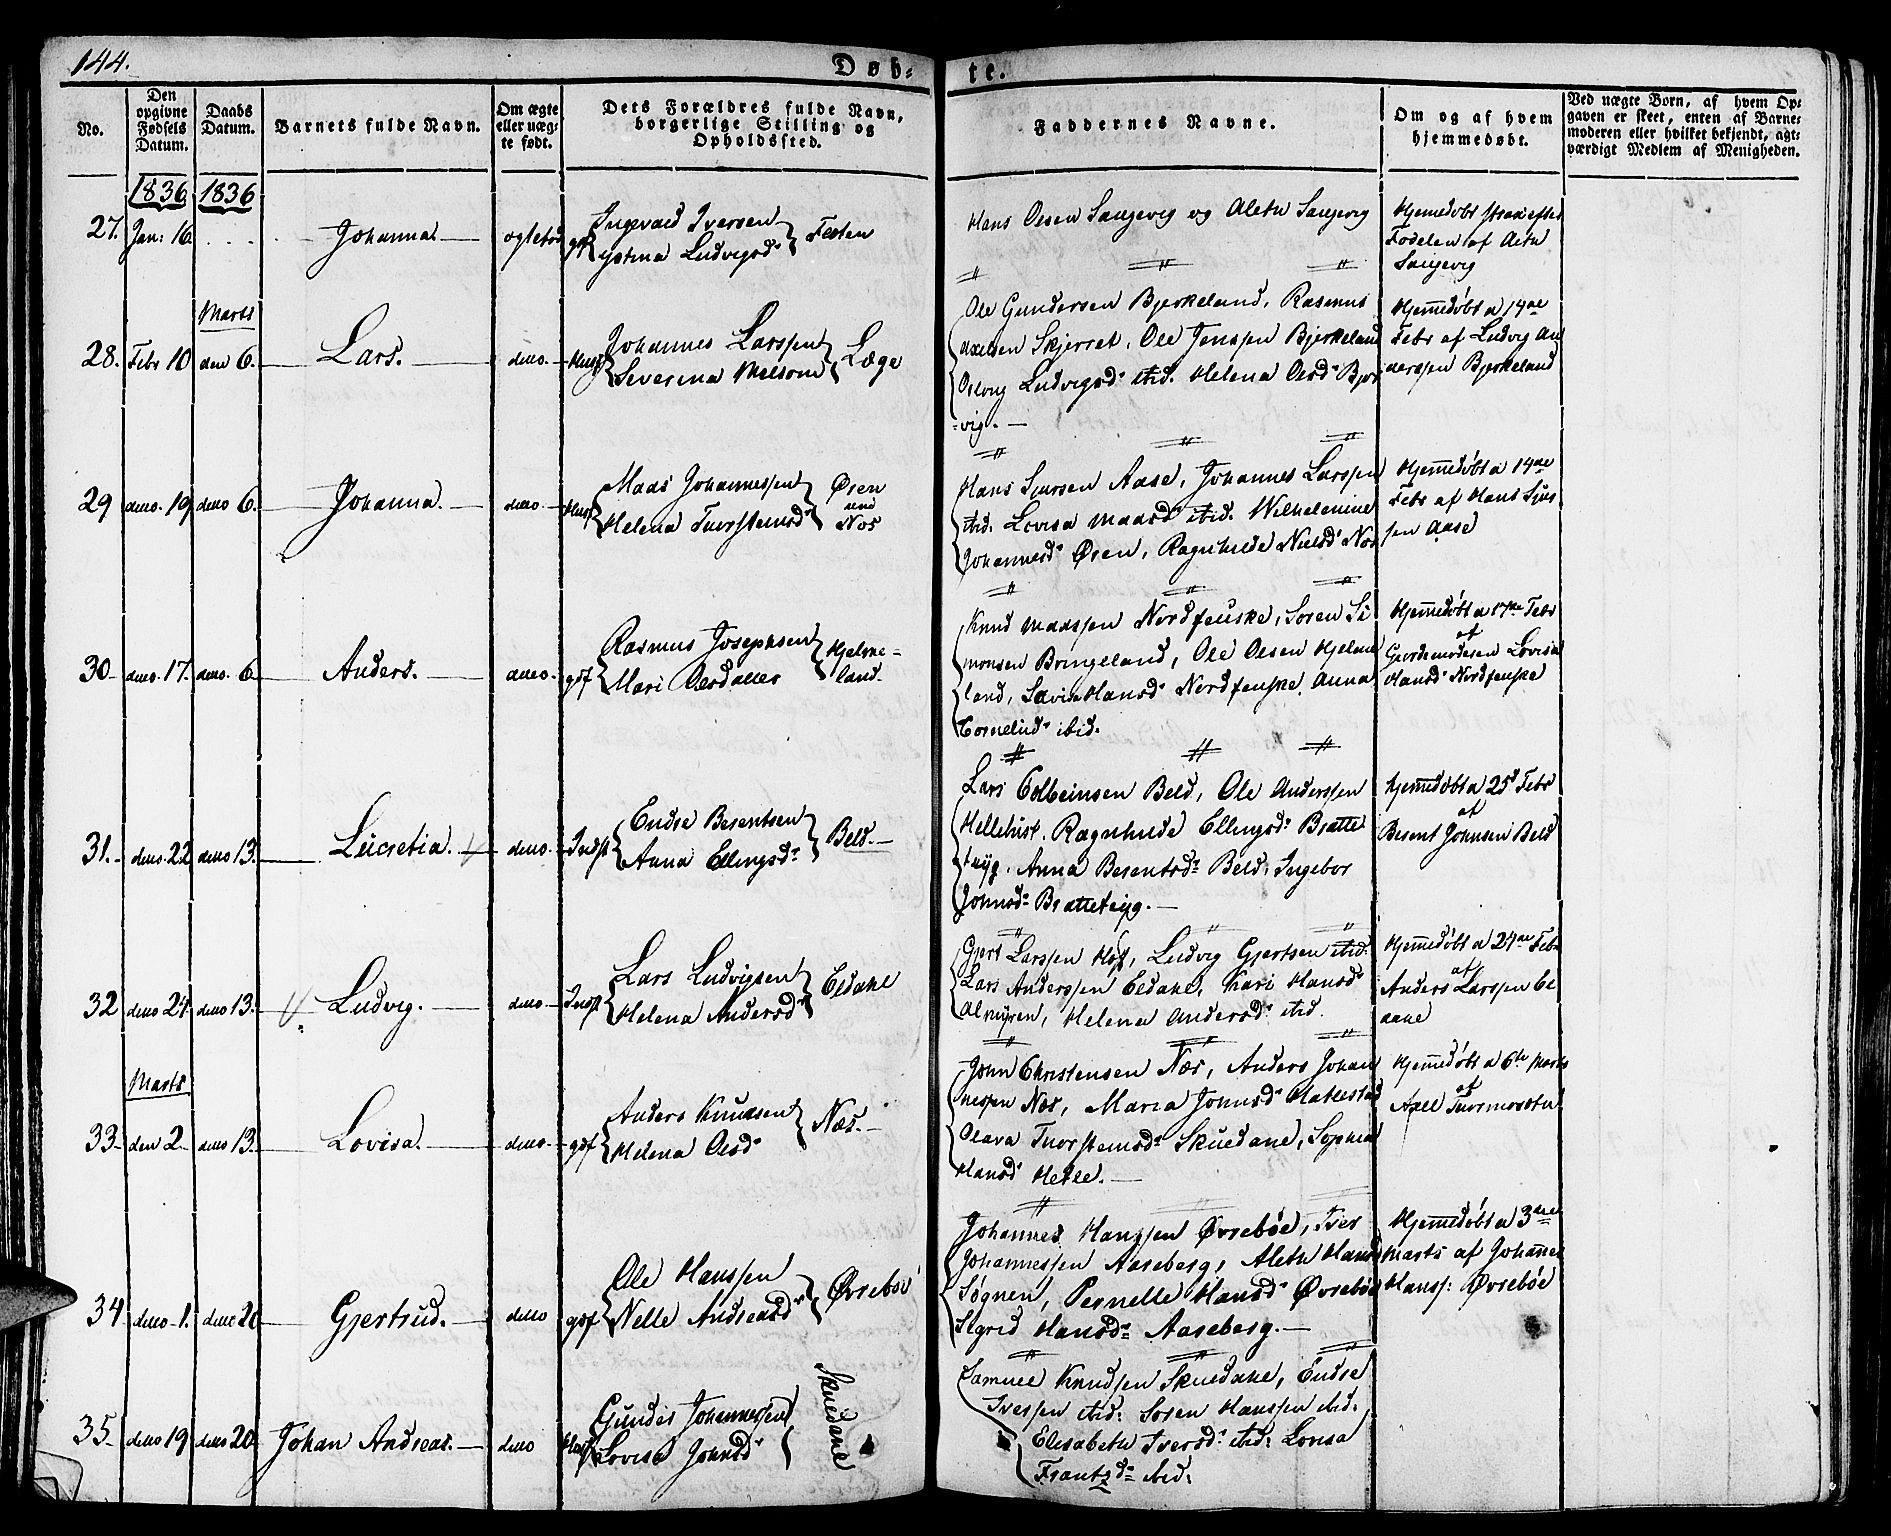 144.
Døb- te.
No.
Den opgivne Fødsels Datum.
Daabs Datum.
Barnets fulde Navn.
Om ægte eller uæg- te født.
Dets Forældres fulde Navn, borgerlige Stilling og Opholdsted.
Faddernes Navne.
Om og af hvem hjemmedøbt.
Ved uægte Børn, af hvem Op- gaven er skeet, enten af Barne- moderen eller hvilket bekjendt, agt- værdigt Medlem af Menigheden.
1836 1836
27. Jan: 16. Johanna.
Ingevald Iversen
Ludvigsd.
Hans Olsen Saugevig og Alethe Saugevig
Hjemedøbt strax efter
Fødelen af Aleth
Saugevig
Marts
28. Febr 10 den 6. Lars. detto
Johannes Larssen
Severina Melsom
Læge
Ole Gundersen Bjerkeland, Rasmus
Skjerret, Ole Jenssen Bjerkeland
Ludvigsd. ibid. Helena Olsd.
vig.
Hjemedøbt a 14de
Febr af Ludvig An
derssen Bjerkeland
29 detto. 19 detto 6. Johanna. detto
Maas Johannessen
Helena Thorstensd.
Øren
Nos
Hans Aase, Johannes Larssen
ibid. Lovisa Maasd. ibid. Wilhelmine
Johannesd. Øren, Ragnhilde Nielsd.
Hjemedøbt a 14de
Febr af Hans
sen Aase
30 detto. 17. detto. 6 Anders. detto.
Rasmus Josephsen
Mari Olesdatter
Hjelme-
land.
Knud Maassen Nordfenske, Søren Si
monsen Bringeland, Ole Olsen Hjelme
land, Hansd. Nordfenske, Anna
Cornelisd. ibid.
Hjemedøbt a 17de Febr
af
Lovisa
Hansd. Nordfenske
31. detto. 22 detto 13. Lucretia. detto.
Indst
Endre Berentsen
Anna Ellingsd.
Beld.
Lars Colbeinsen Beld, Ole Anderssen
Ragnhilde Ellingsd. Bratte
Anna Berentsd. Beld, Ingebor
Johnsd.
Hjemedøbt a 25d Febr
af
Berent Johnsen Beld
32 detto 24. detto 13. Ludvig. detto
Indst
Lars Ludvigsen
Helena Andersd.
Eldahl
Gjert Larssen Hof, Ludvig Gjertsen ibid.
Lars Anderssen Eldahl, Kari Hansd.
Helena Andersd. ibid.
Hjemedøbt a Febr
af
Anders Larssen El
dahl
Marts
33 den 2 detto 13. Lovisa. detto
gdf
Anders Knudsen
Helena Olsd.
Næs.
John Christensen Næs, Anders Johan
nessen Næs, Maria Johnsd. Hatlestad
Olava Thorstensd. Skuedahl, Sophia
Hansd. Hetle.
Hjemedøbt a 6te Marts
af
34 detto 1. detto 20 Gjertrud. detto
gdf
Ole Hanssen
Nelle Andreasd.
Øvrebø
Johannes Hanssen Øvrebøe, Iver
Johannessen Aaseberg, Aleth Hansd.
Søgnen, Pernelle Hansd. Øvrebøe
Sigrid Hansd. Aaseberg.
Hjemedøbt a 3die
Marts af Johannes
Hanss: Øvrebøe
35. detto 19 detto 20. Johan Andreas. detto
Johannessen
Lovisa Johnsd.
Skuedahl
Samuel Knudsen Skuedahl, Endre
Iverssen ibid: Søren Hanssen ibid.
Elisabeth Iversd. ibid: Lovisa
Frantzd. ibid: